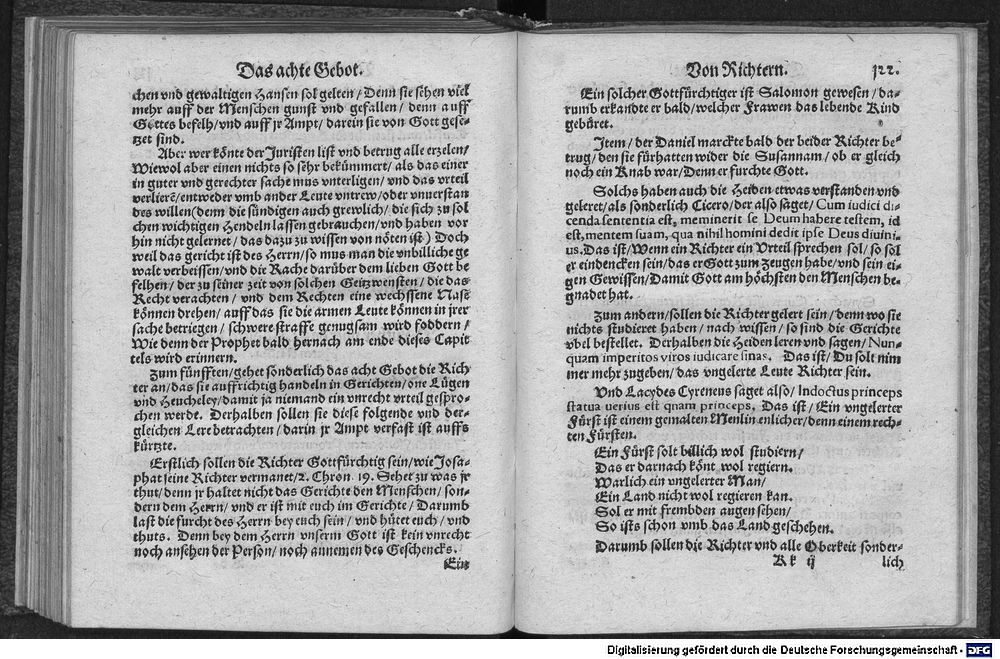 Das achte Gebot.
chen vnd gewaltigen Hansen sol gelten / Denn sie sehen viel
mehr auff der Menschen gunst vnd gefallen / denn auff
Gottes befelh / vnd auff jr Ampt / darein sie von Gott gese-
tzet sind.
Aber wer könte der Juristen list vnd betrug alle erzelen /
Wiewol aber einen nichts so sehr bekümmert / als das einer
in guter vnd gerechter sache mus vnterligen / vnd das vrteil
verlierē / entweder vmb ander Leute vntrew / oder vnuerstan
des willen (denn die sündigen auch grewlich / die sich zu sol
chen wichtigen Hendeln lassen gebrauchen / vnd haben vor
hin nicht gelernet / das dazu zu wissen von nöten ist) Doch
weil das gericht ist des Herrn / so mus man die vnbilliche ge
walt verbeissen / vnd die Rache darüber dem lieben Gott be
felhen / der zu seiner zeit von solchen Geitzwensten / die das
Recht verachten / vnd dem Rechten eine wechssene Nase
können drehen / auff das sie die armen Leute können in jrer
sache betriegen / schwere straffe genugsam wird foddern /
Wie denn der Prophet bald hernach am ende dieses Capit
tels wird erinnern.
Zum fünfften / gehet sonderlich das acht Gebot die Rich
ter an / das sie auffrichtig handeln in Gerichten / one Lügen
vnd Heucheley / damit ja niemand ein vnrecht vrteil gespro-
chen werde. Derhalben sollen sie diese folgende vnd der-
gleichen Lere betrachten / darin jr Ampt verfast ist auffs
kürtzte.
Erstlich sollen die Richter Gottfürchtig sein / wie Josa-
phat seine Richter vermanet / 2. Chron. 19. Sehet zu was jr
thut / denn jr haltet nicht das Gerichte den Menschen / son-
dern dem Herrn / vnd er ist mit euch im Gerichte / Darumb
last die furcht des Herrn bey euch sein / vnd hütet euch / vnd
thuts. Denn bey dem Herrn vnserm Gott ist kein vnrecht
noch ansehen der Person / noch annemen des Geschencks.
Ein
Von Richtern. 122.
Ein solcher Gottfürchtiger ist Salomon gewesen / da-
rumb erkandte er bald / welcher Frawen das lebende Kind
gebüret.
Item / der Daniel marckte bald der beider Richter be-
trug / den sie fürhatten wider die Susannam / ob er gleich
noch ein Knab war / Denn er furchte Gott.
Solchs haben auch die Heiden etwas verstanden vnd
geleret / als sonderlich Cicero / der also saget / Cum iudici di-
cenda sententia est, meminerit se Deum habere testem, id
est, mentem suam, qua nihil homini dedit ipse Deus diuini-
us. Das ist / Wenn ein Richter ein Vrteil sprechen sol / so sol
er eindencken sein / das er Gott zum Zeugen habe / vnd sein ei-
gen Gewissen / Damit Gott am höchsten den Menschen be-
gnadet hat.
Zum andern / sollen die Richter gelert sein / denn wo sie
nichts studieret haben / nach wissen / so sind die Gerichte
vbel bestellet. Derhalben die Heiden leren vnd sagen / Nun-
quam imperitos viros iudicare sinas. Das ist / Du solt nim
mer mehr zugeben / das vngelerte Leute Richter sein.
Vnd Lacydes Cyreneus saget also / Indoctus princeps
statua uerius est quam princeps. Das ist / Ein vngelerter
Fürst ist einem gemalten Menlin enlicher / denn einem rech-
ten Fürsten.
Ein Fürst solt billich wol studiern /
Das er darnach könt wol regiern.
Warlich ein vngelerter Man /
Ein Land nicht wol regieren kan.
Sol er mit frembden augen sehen /
So ists schon vmb das Land geschehen.
Darumb sollen die Richter vnd alle Oberkeit sonder-
K k ij lich
Digitalisierung gefördert durch die Deutsche Forschungsgemeinschaft - DFG